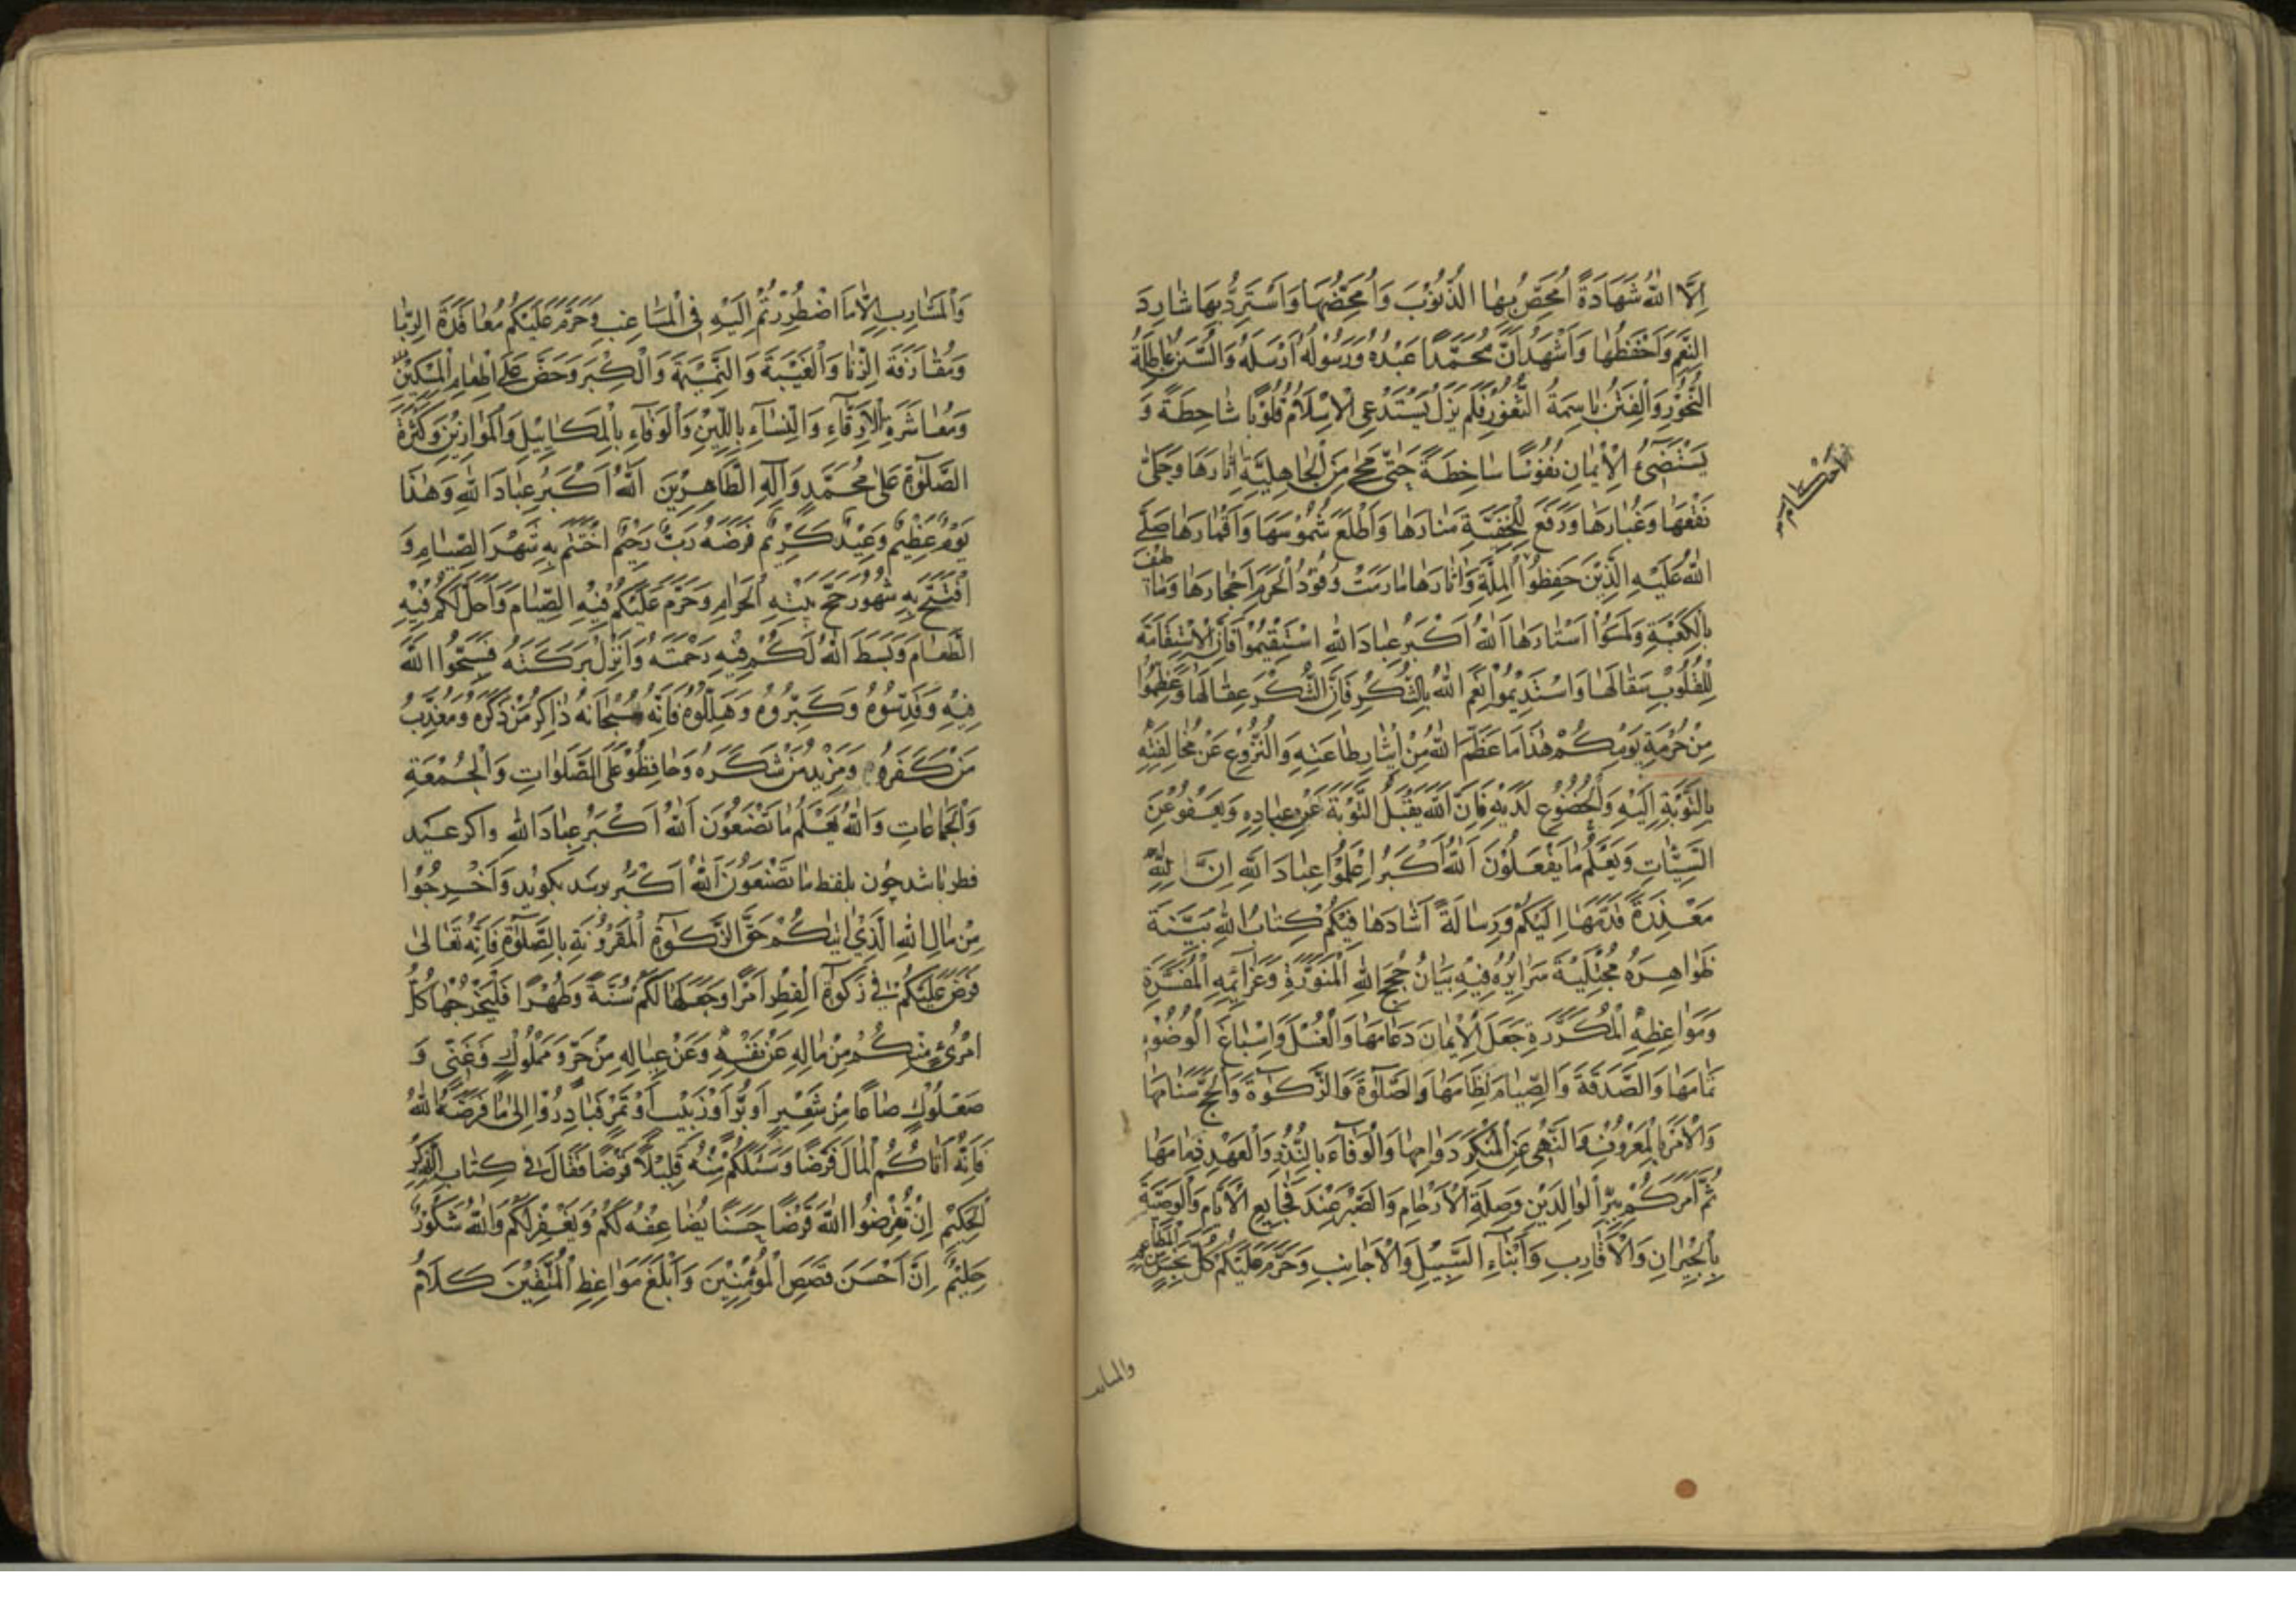 اِلَّا اللهُ شَهَادَةً اُمَحِّصُ بِهَا الذُّنُوْبَ وَاُمَحِّضُهَا وَاَسْتَرِدُّ بِهَا شَارِدَ
النِّعَمِ وَاَحْفَظُهَا وَاَشْهَدُ اَنَّ مُحَمَّدًا عَبْدُهُ وَرَسُوْلُهُ اَرْسَلَهُ وَالسُّنَنُ عَاطِلَةُ
النُّحُوْرِ وَالْفِتَنُ بَاسِمَةُ الثُّغُوْرِ فَلَمْ يَزَلْ يَسْتَدْعِى لِلْاِسْلَامِ قُلُوْبًا شَاحِطَةً وَ
يَسْتَضِىْءُ لِلْاِيْمَانِ نُفُوْسًا سَاخِطَةً حَتّٰى مَحٰى مِنَ الْجَاهِلِيَّةِ اٰثَارَهَا وَجَلّٰى
نَقْعَهَا وَغُبَارَهَا وَرَفَعَ لِلْحَنِيْفِيَّةِ مَنَارَهَا وَاَطْلَعَ شُمُوْسَهَا وَاَقْمَارَهَا صَلَّى
اللهُ عَلَيْهِ الَّذِيْنَ حَفِظُوْا الْمِلَّةَ وَاٰثَارَهَا مَا رَمَتْ وُفُوْدُ الْحَرَمِ اَحْجَارَهَا وَمَا طَافَتْ
بِالْكَعْبَةِ وَلَمَسُوْا اَسْتَارَهَا اَللهُ اَكْبَرُ عِبَادَ اللهِ اسْتَقِيْمُوْا فَاِنَّ الْاِسْتِقَامَةَ
لِلْقُلُوْبِ سِقَالَهَا وَاسْتَدِيْمُوْا نِعَمَ اللهِ بِالشُّكْرِ فَاِنَّ الشُّكْرَ عِقَالُهَا وَعَظِّمُوْا
مِنْ حُرْمَةِ يَوْمِكُمْ هٰذَا مَا عَظَّمَ اللهُ مِنْ اِيْثَارِ طَاعَتِهِ وَالنُّزُوْعِ عَنْ مُخَالَفَتِهِ
بِالتَّوْبَةِ اِلَيْهِ وَالْخُضُوْعِ لَدَيْهِ فَاِنَّ اللهَ يَقْبَلُ التَّوْبَةَ عَنْ عِبَادِهِ وَيَعْفُوْ عَنِ
السَّيِّئَاتِ وَيَعْلَمُ مَا يَفْعَلُوْنَ اَللهُ اَكْبَرُ اِعْلَمُوْا عِبَادَ اللهِ اِنَّ لِلّٰهِ
مَعْذِرَةً قَدَّمَهَا اِلَيْكُمْ وَرِسَالَةً اَشَادَهَا فِيْكُمْ كِتَابُ اللهِ بَيِّنَةٌ
ظَوَاهِرُهُ مُجْتَلِيَةٌ سَرَايِرُهُ فِيْهِ بَيَانُ حُجَجِ اللهِ الْمُنَوَّرَةِ وَعَزَآئِمِهِ الْمُفَسَّرَةِ
وَمَوَاعِظِهِ الْمُكَرَّرَةِ جَعَلَ الْاِيْمَانَ دَعَامَهَا وَالْغُسْلَ وَاِسْبَاغَ الْوُضُوْءِ
تَمَامَهَا وَالصَّدَقَةَ وَالصِّيَامَ نِظَامَهَا وَالصَّلٰوةَ وَالزَّكٰوةَ وَالْحَجَّ سَنَامَهَا
وَالْاَمْرَ بِالْمَعْرُوْفِ وَالنَّهْىَ عَنِ الْمُنْكَرِ دَوَامَهَا وَالْوَفَاءَ بِالنُّذُرِ وَالْعَهْدِ ذِمَامَهَا
ثُمَّ اَمَرَكُمْ بِبِرِّ الْوَالِدَيْنِ وَصِلَةِ الْاَرْحَامِ وَالصَّبْرِ عِنْدَ فَجَايِعِ الْاَيَّامِ وَالْوَصِيَّةِ
بِالْجِيْرَانِ وَالْاَقَارِبِ وَاَبْنَاءِ السَّبِيْلِ وَالْاَجَانِبِ وَحَرَّمَ عَلَيْكُمْ كُلَّ نَجِسٍ مِنَ الْمَطَاعِمِ
وَالْمَشَارِبِ اِلَّا مَا اضْطُرِرْتُمْ اِلَيْهِ فِى الْمَسَاغِبِ وَحَرَّمَ عَلَيْكُمْ مُعَاقَدَةَ الرِّبَا
وَمُقَارَفَةَ الزِّنَا وَالْغِيْبَةَ وَالنَّمِيْمَةَ وَالْكِبْرَ وَحَضَّ عَلٰى اِطْعَامِ الْمِسْكِيْنِ
وَمُعَاشَرَةِ الْاَرِقَّاءِ وَالنِّسَآءِ بِاللِّيْنِ وَالْوَفَاءِ بِالْمَكَايِيْلِ وَالْمَوَازِيْنِ وَكَثْرَةِ
الصَّلٰوةِ عَلٰى مُحَمَّدٍ وَاٰلِهِ الطَّاهِرِيْنَ اَللهُ اَكْبَرُ عِبَادَ اللهِ وَهٰذَا
يَوْمٌ عَظِيْمٌ وَعِيْدٌ كَرِيْمٌ فَرَضَهُ رَبٌّ رَحِيْمٌ اخْتَتَمَ بِهِ شَهْرَ الصِّيَامِ وَ
افْتَتَحَ بِهِ شُهُوْرَ حَجِّ بَيْتِهِ الْحَرَامِ وَحَرَّمَ عَلَيْكُمْ فِيْهِ الصِّيَامَ وَاَحَلَّ لَكُمْ فِيْهِ
الطَّعَامَ وَبَسَطَ اللهُ لَكُمْ فِيْهِ رَحْمَتَهُ وَاَنْزَلَ بَرَكَتَهُ فَسَبِّحُوا اللهَ
فِيْهِ وَقَدِّسُوْهُ وَكَبِّرُوْهُ وَهَلِّلُوْهُ فَاِنَّهُ سُبْحَانَهُ ذَاكِرُ مَنْ ذَكَرَهُ وَمُعَذِّبُ
مَنْ كَفَرَهُ وَمَزِيْدُ مَنْ شَكَرَهُ وَحَافِظُوْا عَلَى الصَّلَوَاتِ وَالْجُمْعَةِ
وَالْجَمَاعَاتِ وَاللهُ يَعْلَمُ مَا تَصْنَعُوْنَ اَللهُ اَكْبَرُ عِبَادَ اللهِ واكر عيد
فطر باشد چون بلفظ ما تَصْنَعُوْنَ اَللهُ اَكْبَرُ برسد بكويد وَاَخْرِجُوْا
مِنْ مَالِ اللهِ الَّذِىْ اٰتٰيكُمْ حَقَّ الزَّكٰوةِ الْمَقْرُوْنَةِ بِالصَّلٰوةِ فَاِنَّهُ تَعَالٰى
فَرَضَ عَلَيْكُمْ فِىْ زَكٰوةِ الْفِطْرِ اَمْرًا وَجَعَلَهَا لَكُمْ سُنَّةً وَطُهْرًا فَلْيُخْرِجْهَا كُلُّ
امْرِئٍ مِنْكُمْ مِنْ مَالِهِ عَنْ نَفْسِهِ وَعَنْ عِيَالِهِ مِنْ حُرٍّ وَمَمْلُوْكٍ وَغَنِىٍّ وَ
صَعْلُوْكٍ صَاعًا مِنْ شَعِيْرٍ اَوْ بُرٍّ اَوْ زَبِيْبٍ اَوْ تَمْرٍ فَبَادِرُوْا اِلٰى مَا فَرَضَهُ اللهُ
فَاِنَّهُ اَتَاكُمُ الْمَالَ فَرْضًا وَسَئَلَكُمْ مِنْهُ قَلِيْلًا قَرْضًا فَقَالَ فِىْ كِتَابِ الذِّكْرِ
الْحَكِيْمِ اِنْ تُقْرِضُوا اللهَ قَرْضًا حَسَنًا يُضَاعِفْهُ لَكُمْ وَيَغْفِرْ لَكُمْ وَاللهُ شَكُوْرٌ
حَلِيْمٌ اِنَّ اَحْسَنَ قَصَصِ الْمُؤْمِنِيْنَ وَاَبْلَغَ مَوَاعِظِ الْمُتَّقِيْنَ كَلَامُ